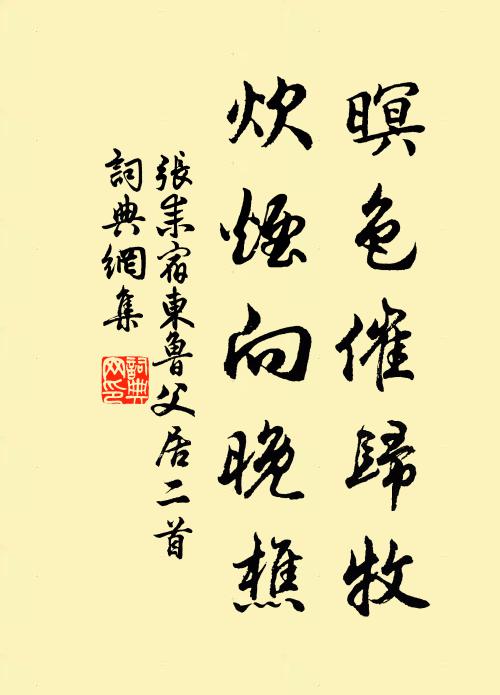 暝色催歸牧
炊煙向晚樵
張耒宿東魯父居二首
詞典網集
詞典
网印